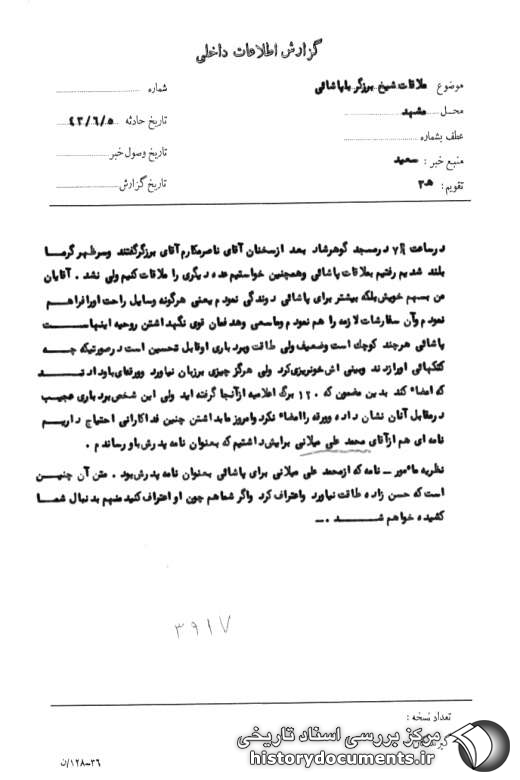 گزارش اطلاعات داخلی
موضوع ملاقات شیخ برزگر با پاشائی
شماره
محل مشهد
تاریخ حادثه ۴۳/۶/۵
عطف بشماره
تاریخ وصول خبر
منبع خبر : سعید
تاریخ گزارش
تقویم : ۳ﻫ
در ساعت ۷ در مسجد گوهرشاد بعد از سخنان آقای ناصر مکارم آقای برزگر گفتند و سر ظهر گرما
بلند شدیم رفتیم بملاقات پاشائی و همچنین خواستیم عده دیگری را ملاقات کنیم ولی نشد . آقایان
من بسهم خویش بلکه بیشتر برای پاشائی دوندگی نمودم یعنی هرگونه وسایل راحت او را فراهم
نمودم و آن سفارشات لازمه را هم نمودم و ما سعی و هدفمان قوی نگهداشتن روحیه اینهاست
پاشائی هرچند کوچک است و ضعیف ولی طاقت و بردباری او قابل تحسین است در صورتیکه چه
کتکهائی او را زدند و بینی اش خونریزی کرد ولی هرگز چیزی بر زبان نیاورد و ورقه‌ای باو دادند
که امضاء کند بدین مضمون که ۱۲۰ برگ اعلامیه از آنجا گرفته اید ولی این شخص بردباری عجیب
در مقابل آنان نشان داده و ورقه را امضاء نکرد و امروز ما بداشتن چنین فداکارانی احتیاج داریم
نامه ای هم از آقای محمد علی میلانی برایش داشتیم که بعنوان نامه پدرش باو رساندم .
نظریه مأمور ـ نامه که از محمد علی میلانی برای پاشائی بعنوان نامه پدرش بود . متن آن چنین
است که حسن زاده طاقت نیاورد و اعتراف کرد و اگر شما هم چون او اعتراف کنید منهم بدنبال شما
کشیده خواهم شد . ـ
۳۹۱۷
تعداد نسخه :
مرکز بررسی اسناد تاریخی
historydocuments.ir
۳۶-۱۲۸/ن